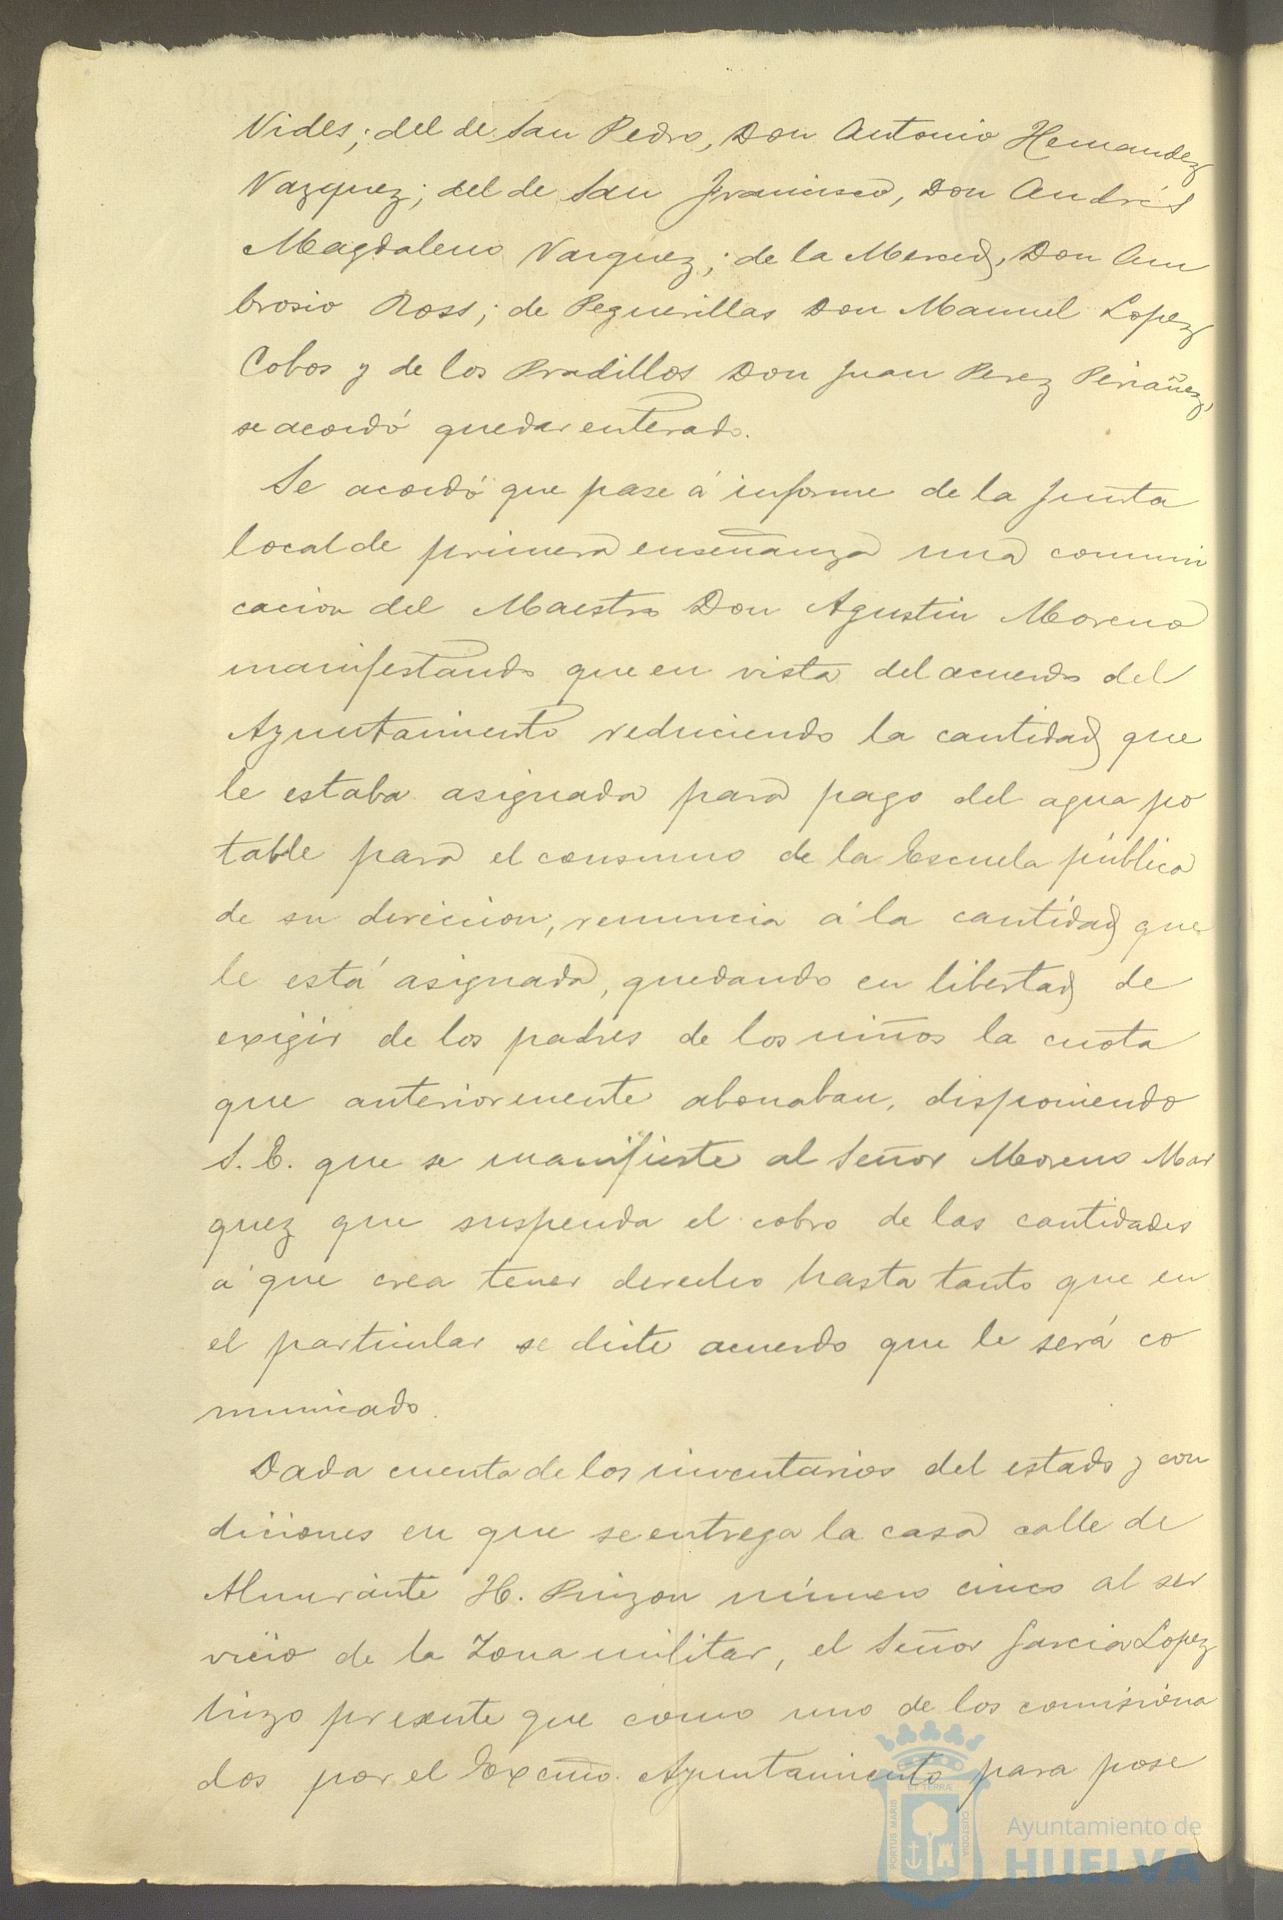 Vides; del de San Pedro, Don Antonio Hernandez
Vazquez; del de San Francisco, Don Andrés
Magdaleno Vazquez; de la Merced, Don Am
brosio Ross; de Peguerillas Don Manuel Lopez
Cobos y de los Pradillos Don Juan Perez Periañez,
se acordó quedar enterado.
Se acordó que pase á informe de la Junta
local de primera enseñanza una comuni
cacion del Maestro Don Agustin Moreno
manifestando que en vista del acuerdo del
Ayuntamiento reduciendo la cantidad que
le estaba asignada para pago del agua po
table para el consumo de la Escuela pública
de su direccion, renuncia á la cantidad que
le está asignada, quedando en libertad de
exigir de los padres de los niños la cuota
que anteriormente abonaban, disponiendo
S. E. que se manifieste al Señor Moreno Mar
quez que suspenda el cobro de las cantidades
á que crea tener derecho hasta tanto que en
el particular se dicte acuerdo que le será co
municado.
Dada cuenta de los inventarios del estado y con
diciones en que se entrega la casa calle de
Almirante H. Pinzon número cinco al ser
vicio de la Zona militar, el Señor Garcia Lopez
hizo presente que como uno de los comisiona
dos por el Excmo. Ayuntamiento para pose
ET TERRÆ
PORTUS MARIS
CUSTODIA
Ayuntamiento de
HUELVA